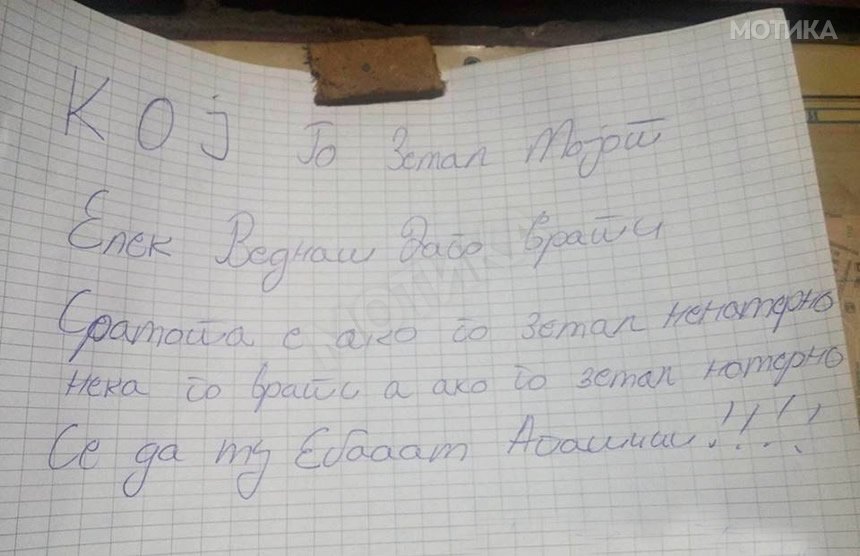 МОТИКА
КОЈ Го Земал Мојот
Елек Веднаш даго врати
Срамота е ако го земал ненамерно
нека го врати а ако го земал намерно
Се да му Ебааат